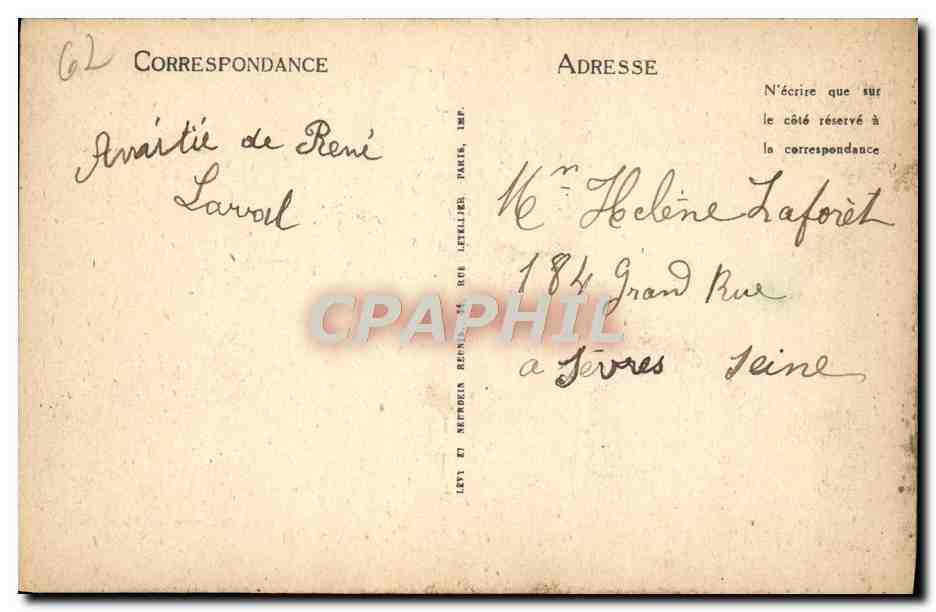 62
CORRESPONDANCE
Amitié de René
Laval
LÉVY ET NEURDEIN REUNIS, 44, RUE LETELLIER, PARIS, IMP.
ADRESSE
N'écrire que sur
le côté réservé à
la correspondance
Mn Helène Laforèt
184 Grand Rue
a Sèvres Seine
CPAPHIL